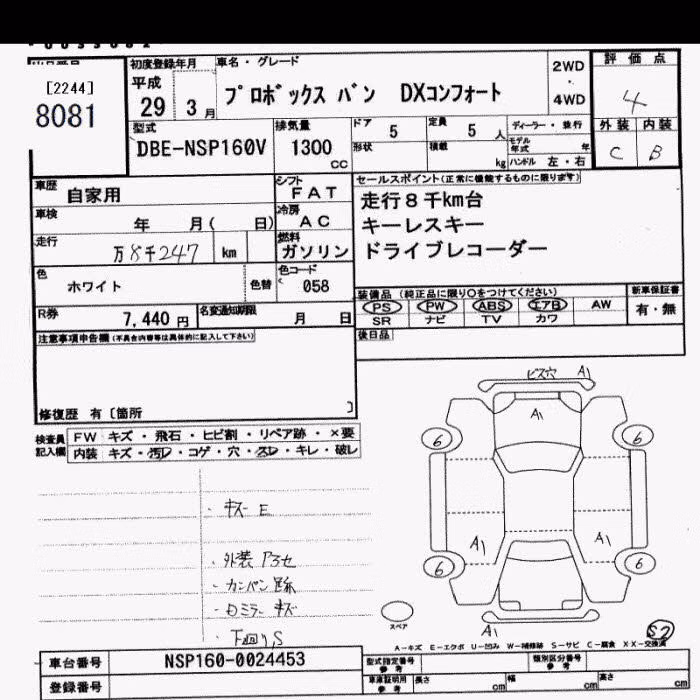 [2244]
8081
初度登録年月
平成
29 3 月
車名・グレード
プロボックス バン DXコンフォート
2WD
・
4WD
評価点
4
外装 内装
C B
型式
DBE-NSP160V
排気量
1300 cc
ドア 5
形状
定員 5 人
積載 kg
ディーラー・並行
モデル年式 年
ハンドル 左・右
車歴
自家用
車検
年 月( 日)
走行
万8千247 km
色
ホワイト
色替
シフト
FAT
冷房
AC
燃料
ガソリン
色コード
058
R券
7,440 円
名変通知期限
月 日
セールスポイント(正常に機能するものに限ります)
走行8千km台
キーレスキー
ドライブレコーダー
装備品 (純正品に限り○をつけてください)
PS PW ABS エアB AW
SR ナビ TV カワ
新車保証書
有・無
後日品
注意事項申告欄(不具合内容等は具体的に記入して下さい)
修復歴 有〔箇所 〕
検査員
記入欄
FW キズ・飛石・ヒビ割・リペア跡・×要
内装 キズ・汚レ・コゲ・穴・スレ・キレ・破レ
・キズ E
・外装
・カンバン跡
・ロミラー キズ
・下廻りS
ビス穴 A1
A1
6 6
A1 A1
6 6
A1
スペア
S2
A-キズ E-エクボ U-凹み W-補修跡 S-サビ C-腐食 XX-交換済
車台番号
NSP160-0024453
登録番号
型式指定番号
参考
類別区分番号
参考
車庫証明用
参考
長さ cm 幅 cm 高さ cm